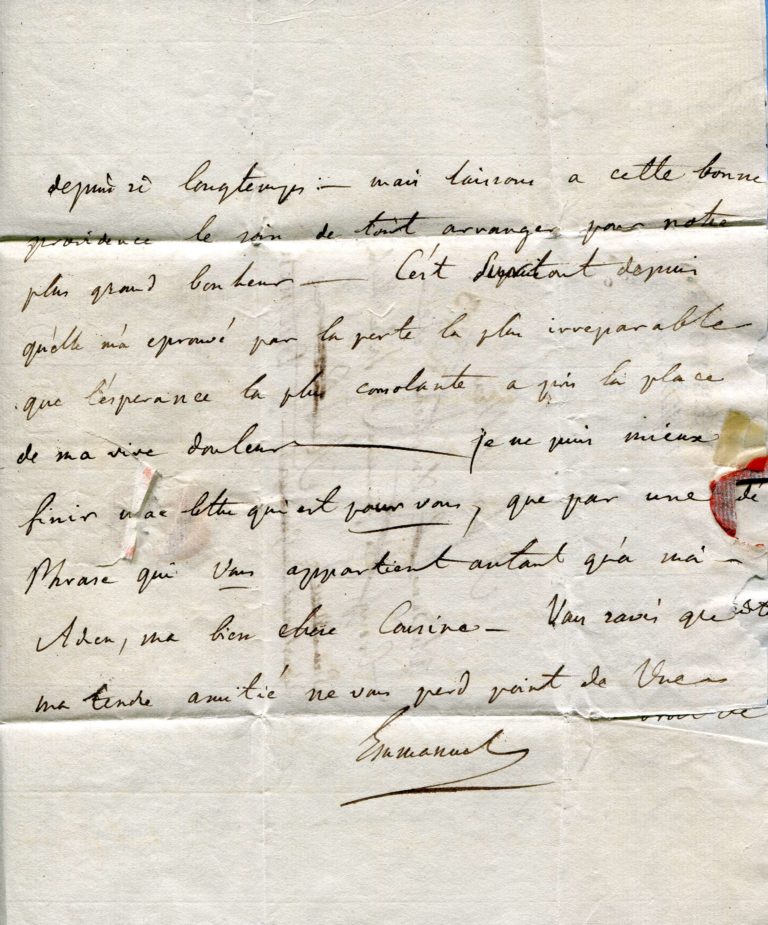 depuis si longtemps — mais laissons a cette bonne
providence le soin de tout arranger pour notre
plus grand bonheur — C'est surtout depuis
qu'elle m'a eprouvé par la perte la plus irreparable
que l'ésperance la plus consolante a pris la place
de ma vive douleur — je ne puis mieux
finir une lettre qui est pour vous, que par une dé
Phrase qui Vous appartient autant qu'a moi —
Adieu, ma bien chere Cousine — Vous savés que
ma tendre amitié ne vous perd point de Vue
Emmanuel